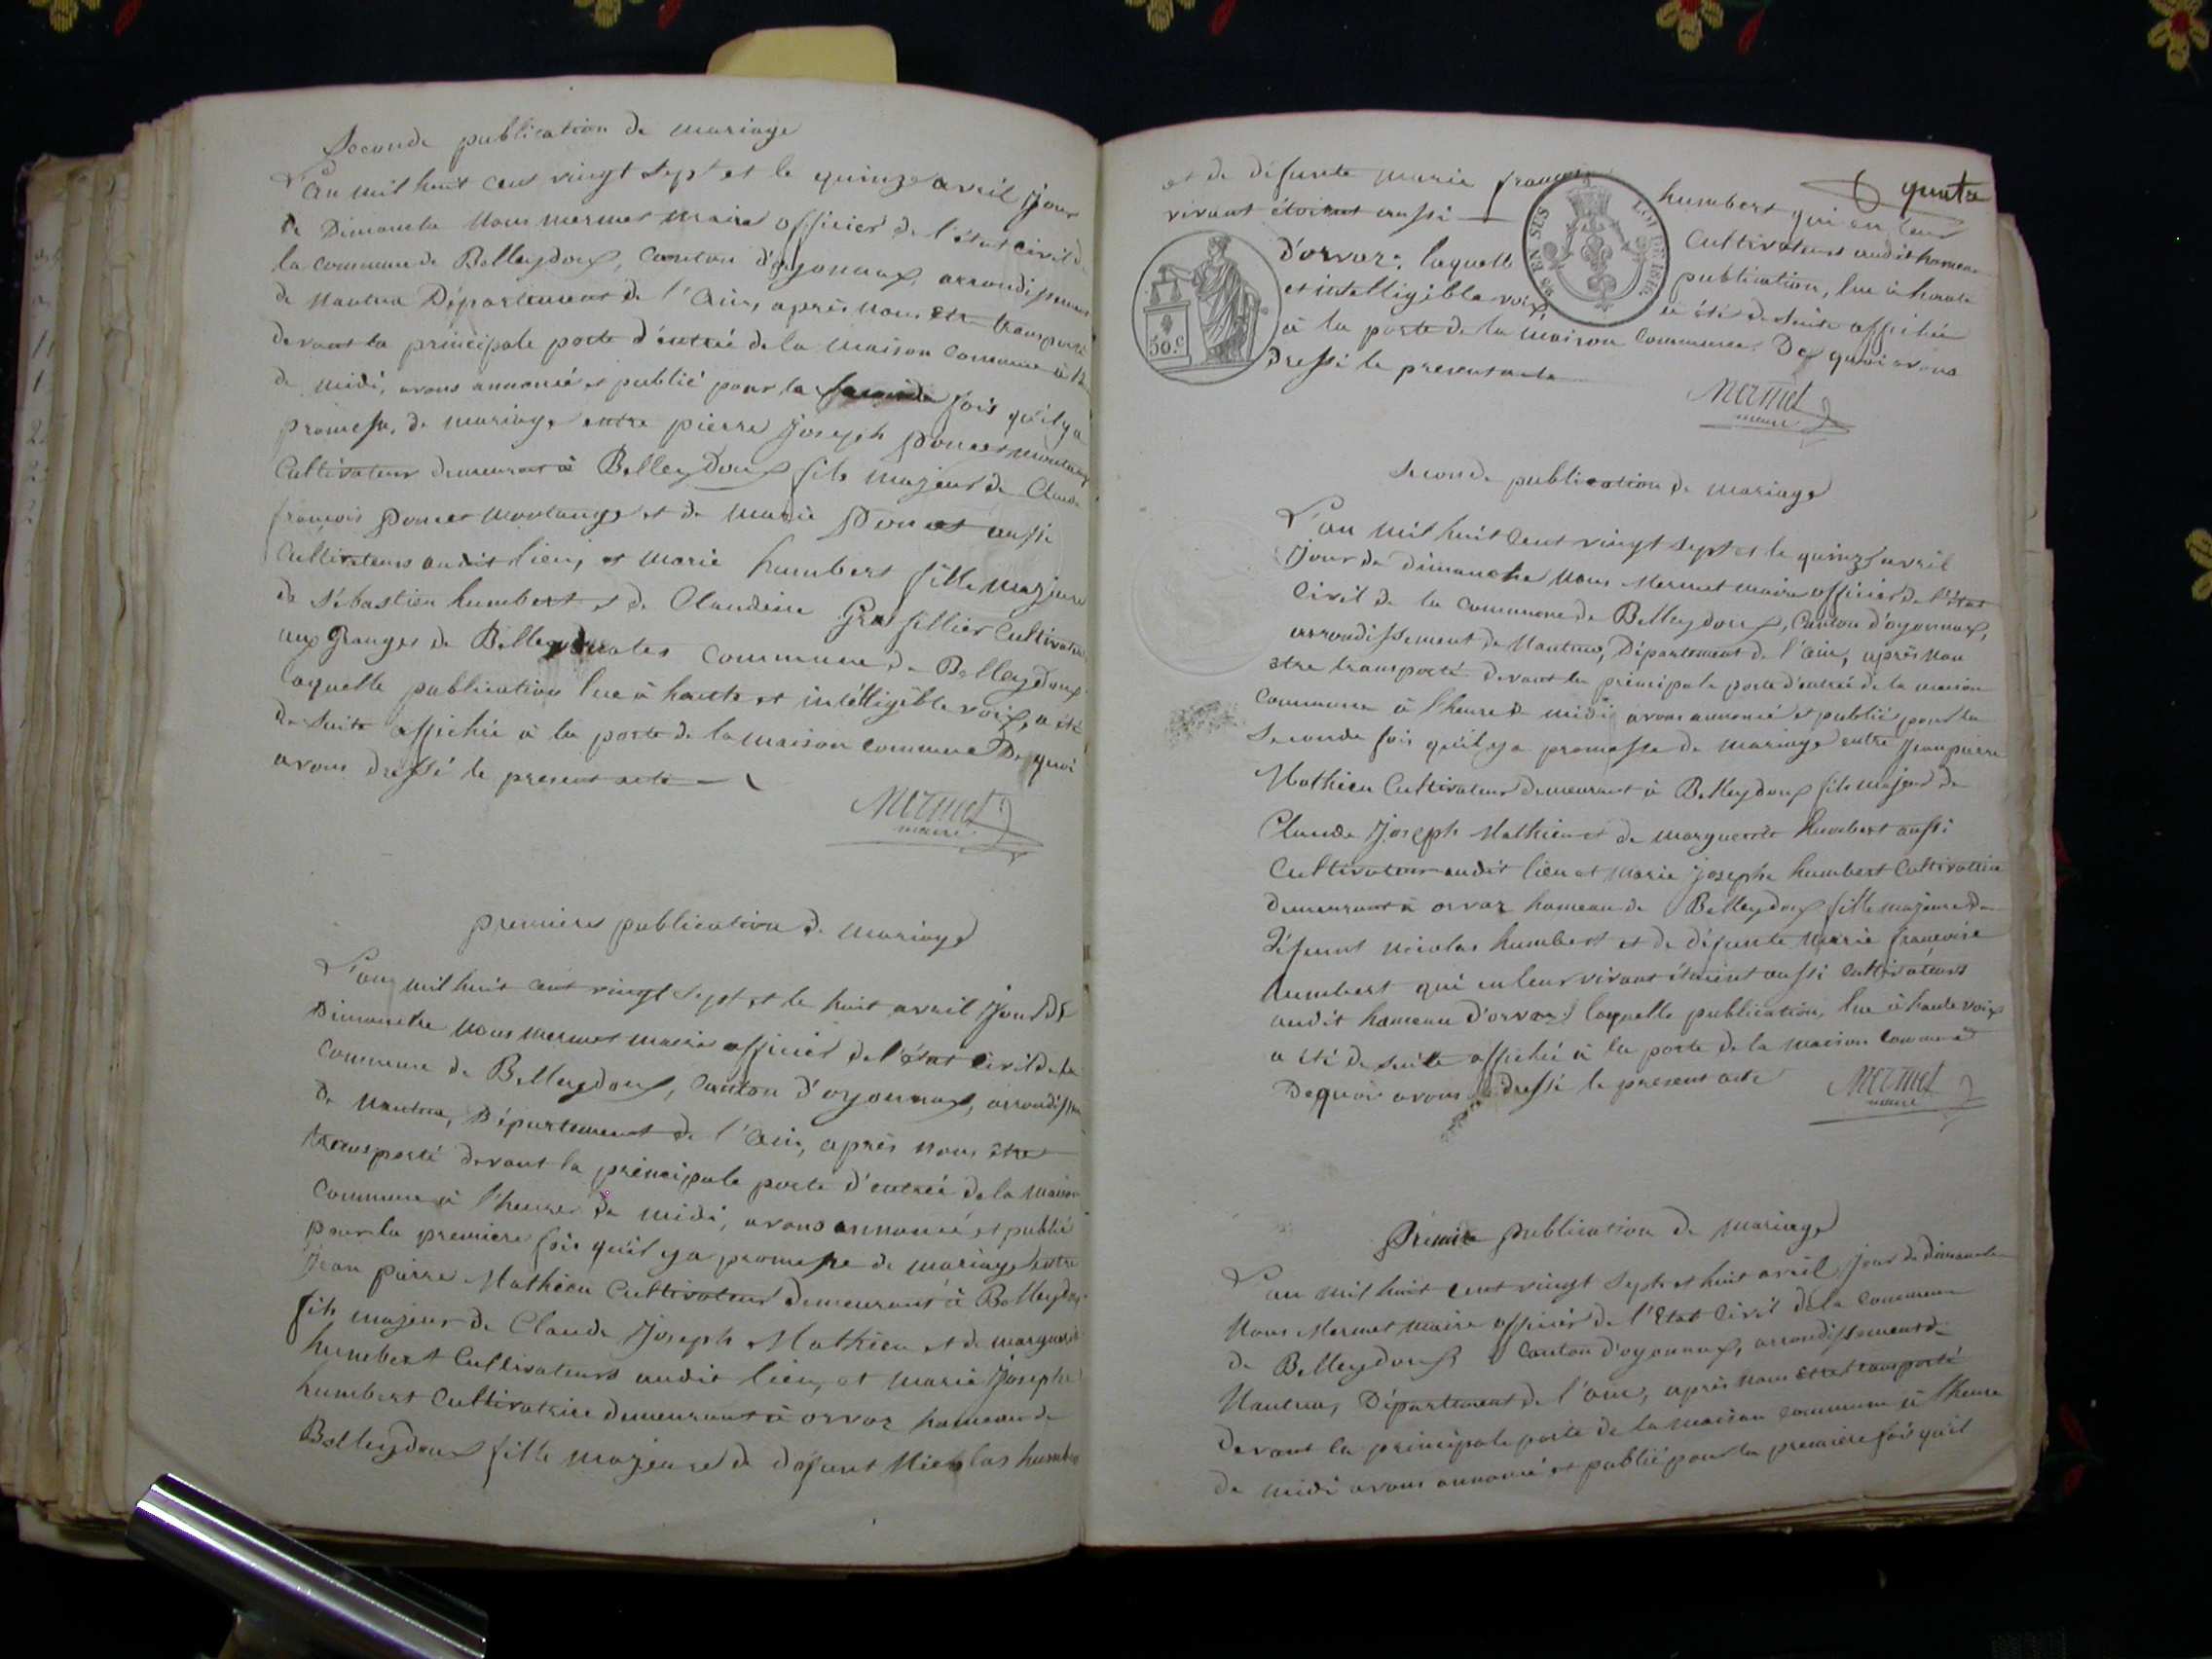 Seconde publication de mariage
L'an mil huit cent vingt sept et le quinze avril jour
de Dimanche Nous mermet maire officier de l'état civil de
la commune de Belleydoux, canton d'oyonnax, arrondissement
de Nantua Département de l'Ain, après nous etre transporté
devant la principale porte d'entrée de la maison commune à
de midi, avons annoncé et publié pour la seconde fois qu'il y a
promesse de mariage entre pierre joseph poncet montange
Cultivateur demeurant à Belleydoux fils majeur de Claude
françois poncet montange et de marie poncet aussi
Cultivateurs audit lieu, et marie humbert fille majeure
de sébastien humbert et de Claudine Grosfillier Cultivateurs
aux Granges de commune de Belleydoux
laquelle publication lue à haute et intélligible voix, a été
de suite affichée à la porte de la maison commune De quoi
avons dressé le present acte
Mermet
maire
premiere publication de mariage
L'an mil huit cent vingt sept et le huit avril jour de
Dimanche nous mermet maire officier de l'état civil de la
commune de Belleydoux, canton d'oyonnax, arrondissem
de Nantua, Département de l'Ain, après nous être
transporté devant la principale porte d'entrée de la maison
commune à l'heure de midi, avons annoncé et publié
pour la premiere fois qu'il y a promesse de mariage entre
jean pierre Mathieu Cultivateur demeurant à Belleydoux
fils majeur de Claude joseph Mathieu et de marguerite
humbert Cultivateurs audit lieu, et marie josephe
humbert Cultivatrice demeurant à orvaz hameau de
Belleydoux fille majeure de défunt Nicolas humbert
quatre
et de défunte marie françoise humbert qui en leur
vivant étoient aussi Cultivateurs audit hameau
d'orvaz: laquelle publication, lue à haute
et intelligible voix, a été de suite affichée
à la porte de la maison commune. De quoi avons
dressé le present acte
EN SUS
LOI DE 1816
50.c
Mermet
maire
Seconde publication de mariage
L'an mil huit cent vingt sept et le quinze avril
jour de dimanche Nous Mermet maire officier de l'état
Civil de la commune de Belleydoux, Canton d'oyonnax,
arrondissement de Nantua, Département de l'Ain, après nous
etre transporté devant la principale porte d'entrée de la maison
commune à l'heure de midi avons annoncé et publié pour la
seconde fois qu'il y a promesse de mariage entre jean pierre
Mathieu Cultivateur demeurant à Belleydoux fils majeur de
Claude joseph Mathieu et de marguerite humbert aussi
Cultivateur audit lieu et marie josephe humbert Cultivatrice
demeurant à orvaz hameau de Belleydoux fille majeure de
défunt nicolas humbert et de défunte marie françoise
humbert qui en leur vivant étaient aussi cultivateurs
audit hameau d'orvaz; laquelle publication, lue à haute voix
a été de suite affichée à la porte de la maison commune
De quoi avons dressé le present acte
Mermet
maire
Premiere publication de mariage
L'an mil huit cent vingt sept et huit avril jour de dimanche
Nous Mermet maire officier de l'Etat Civil de la commune
de Belleydoux canton d'oyonnax, arrondissement de
Nantua, Département de l'ain, après nous etre transporté
devant la principale porte de la maison commune à l'heure
de midi avons annoncé et publié pour la premiere fois qu'il